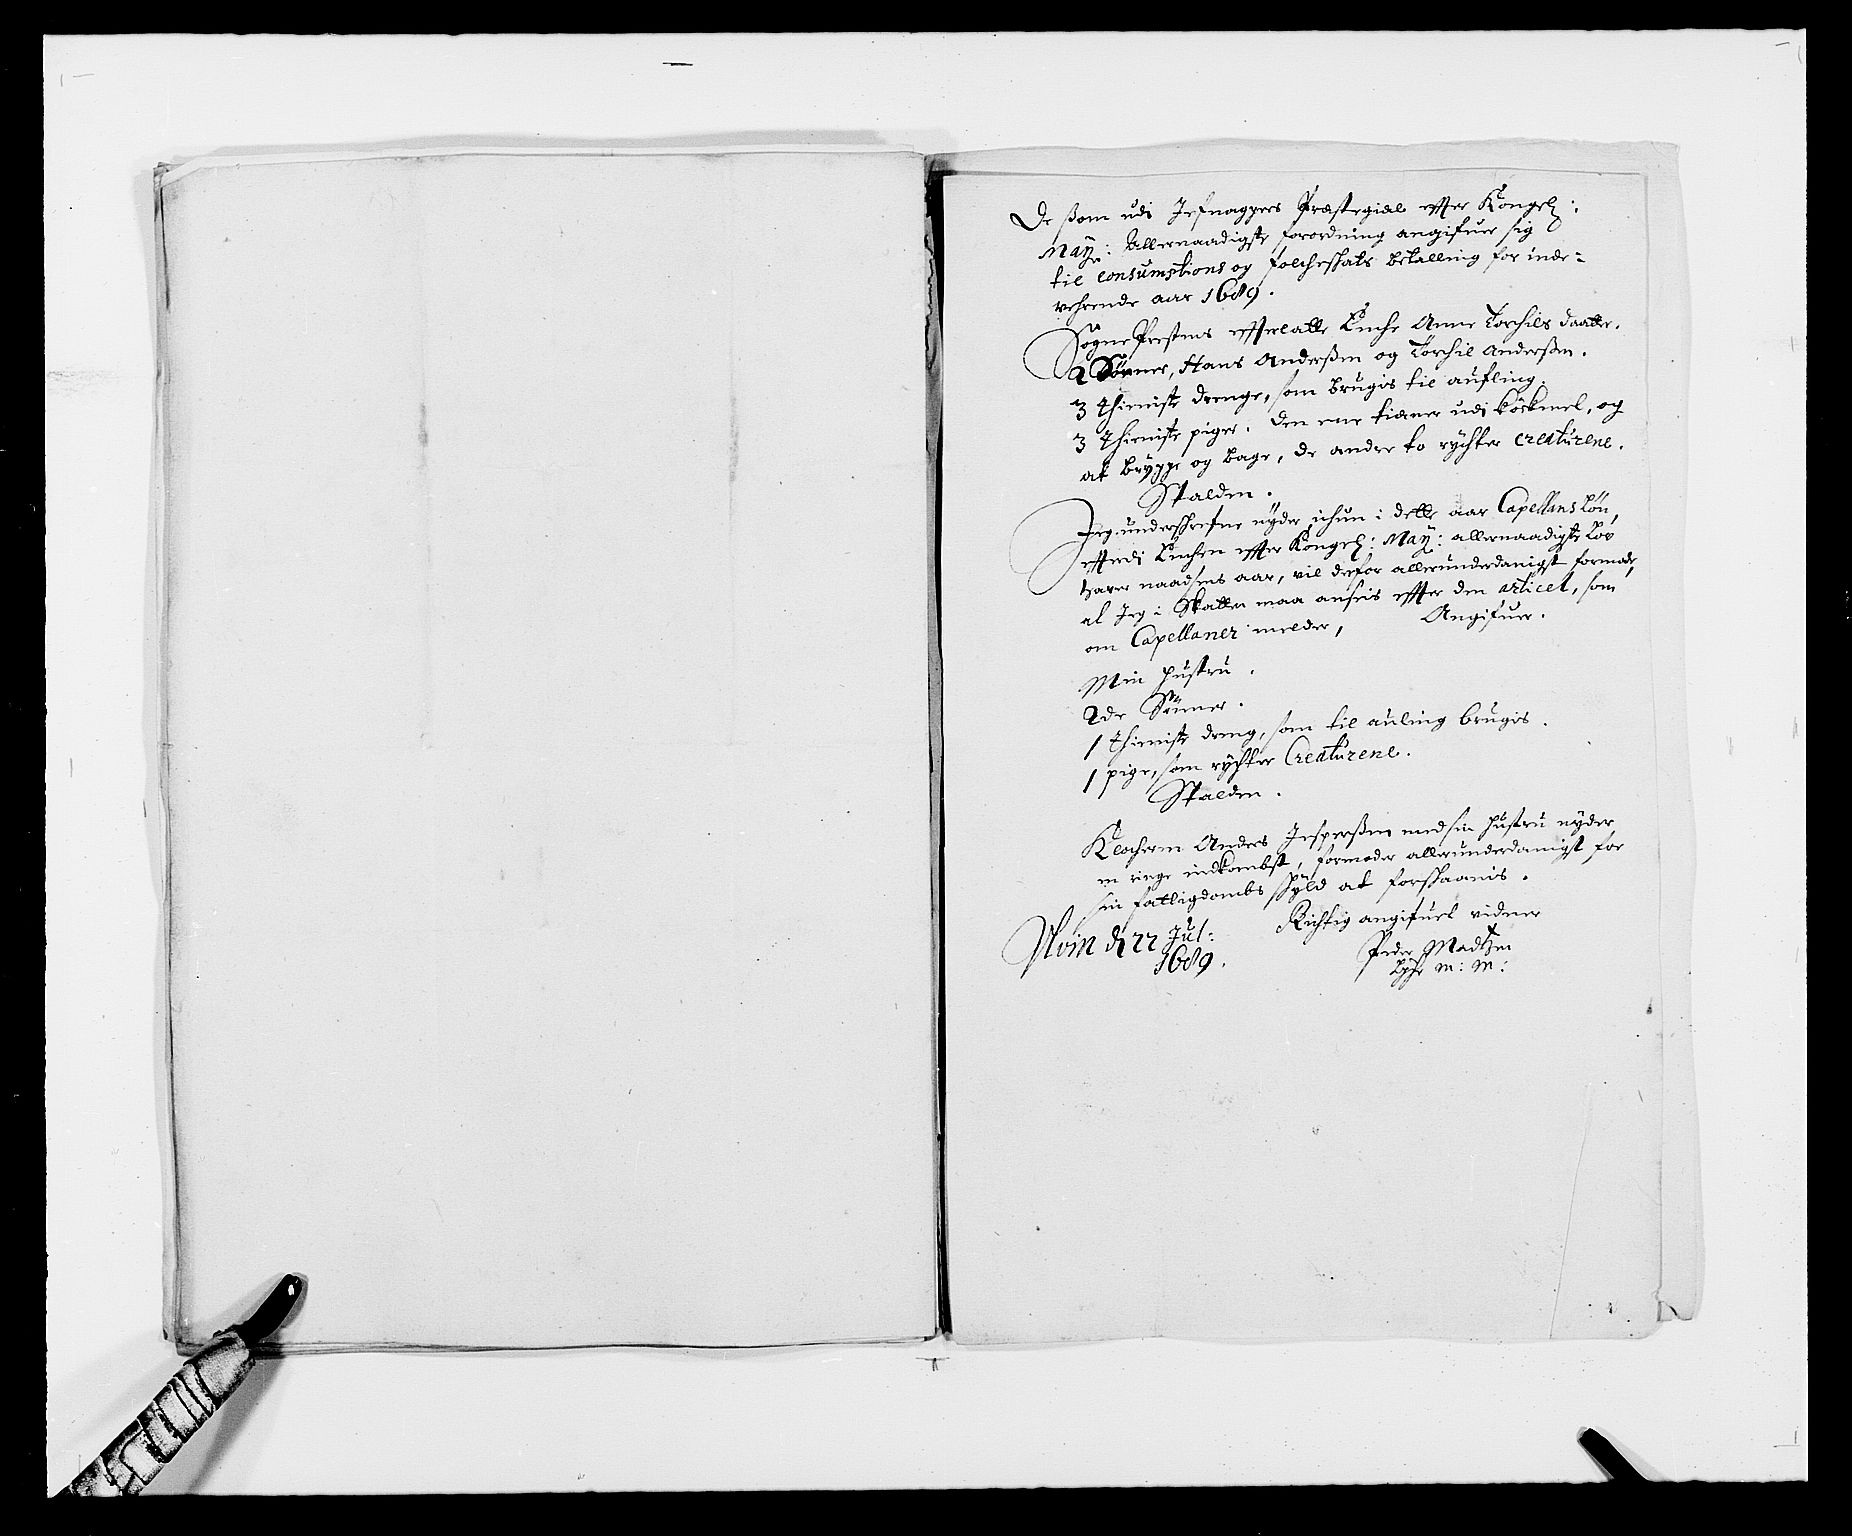 De ßom udi Jefnagers Præstegield effter Kongel:
May: Allernaadigste forordning angifuer sig
til Consumptions og folcheskats betalling for inde=
verende aar 1689.
Sogne Prestens effterlatte Enche Anne Torchils daatter.
2 Sønner, Hans Anderßen og Torchil Anderßen.
3 Thieniste drenge, som brugis til aufling.
3 Thieniste piger. den ene tiæner udi Kôckenel, og
at brygge og bage, de andre to rychter Creaturene.
Stalden.
Jeg underschrefne nyder ichun i dette aar Capellans Løn,
effterdi Enchen effter Kongel: May: allernaadigste Lov
hafver naadsens aar, vil derfor allerunderdanigst formode,
at Jeg i Skatten maa anseis effter den articel, som
om Capellaner melder, Angifuer.
Min hustru.
2de Sønner.
1 Thieniste dreng, som til auling brugis.
1 pige, som rychter Creaturene.
Stalden.
Klocheren Anders Jesperßen med sin hustru nyder
en ringe indkombst, formoder allerunderdanigst for
sin fattigdombs skyld at forskaanis.
Richtig angifuet vidner
Alvin d 22 Jul:
1689.
Peder Madtzen
m: m: